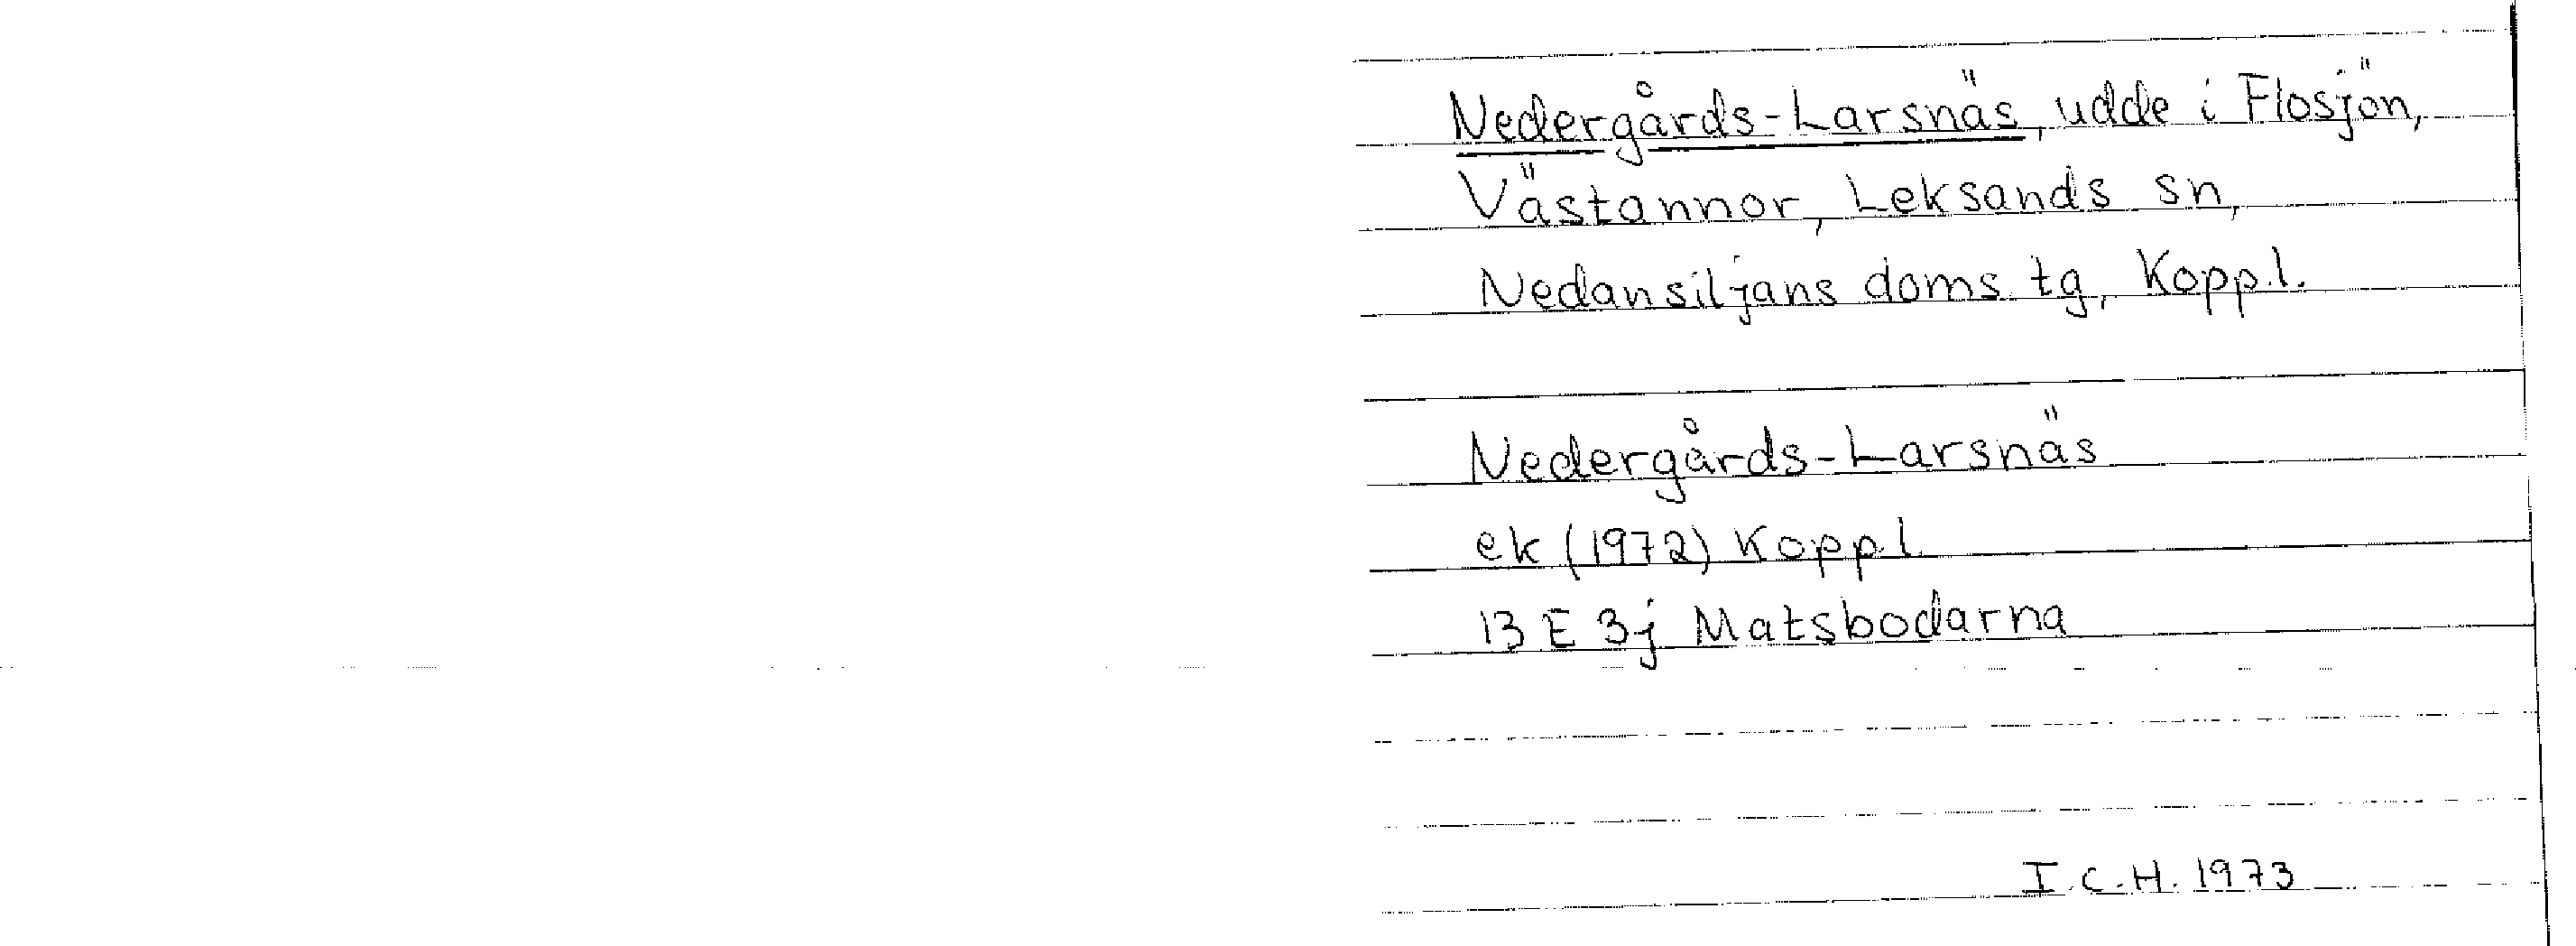 Nedergårds-Larsnäs, udde i Flosjön,
Västannor, Leksands sn,
Nedansiljans doms. tg, Koppl.
Nedergårds-Larsnäs
ek (1972) Koppl.
13 E 3j Matsbodarna
I.C.H. 1973